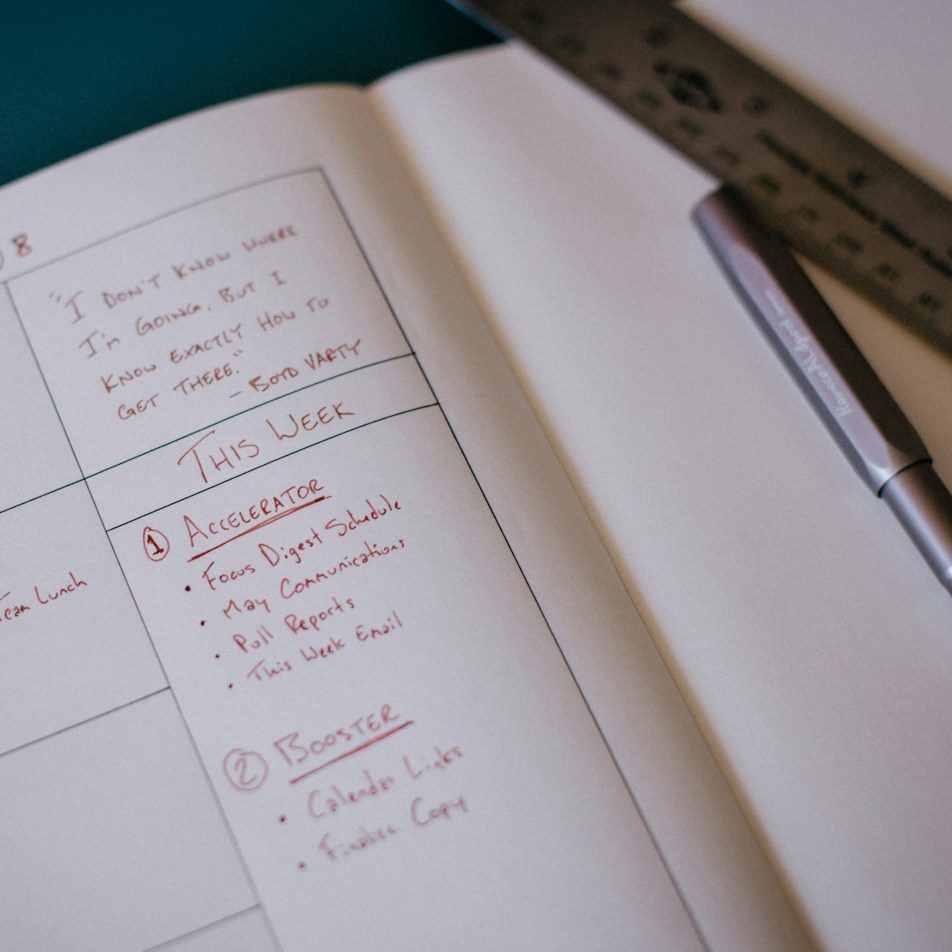 8
"I DON'T KNOW WHERE
I'M GOING, BUT I
KNOW EXACTLY HOW TO
GET THERE."
- BOYD VARTY
THIS WEEK
1 ACCELERATOR
• Focus Digest Schedule
• May Communications
• Pull Reports
• This Week Email
Team Lunch
2 BOOSTER
• Calendar Links
• Finalize Copy
Kaweco AL Sport